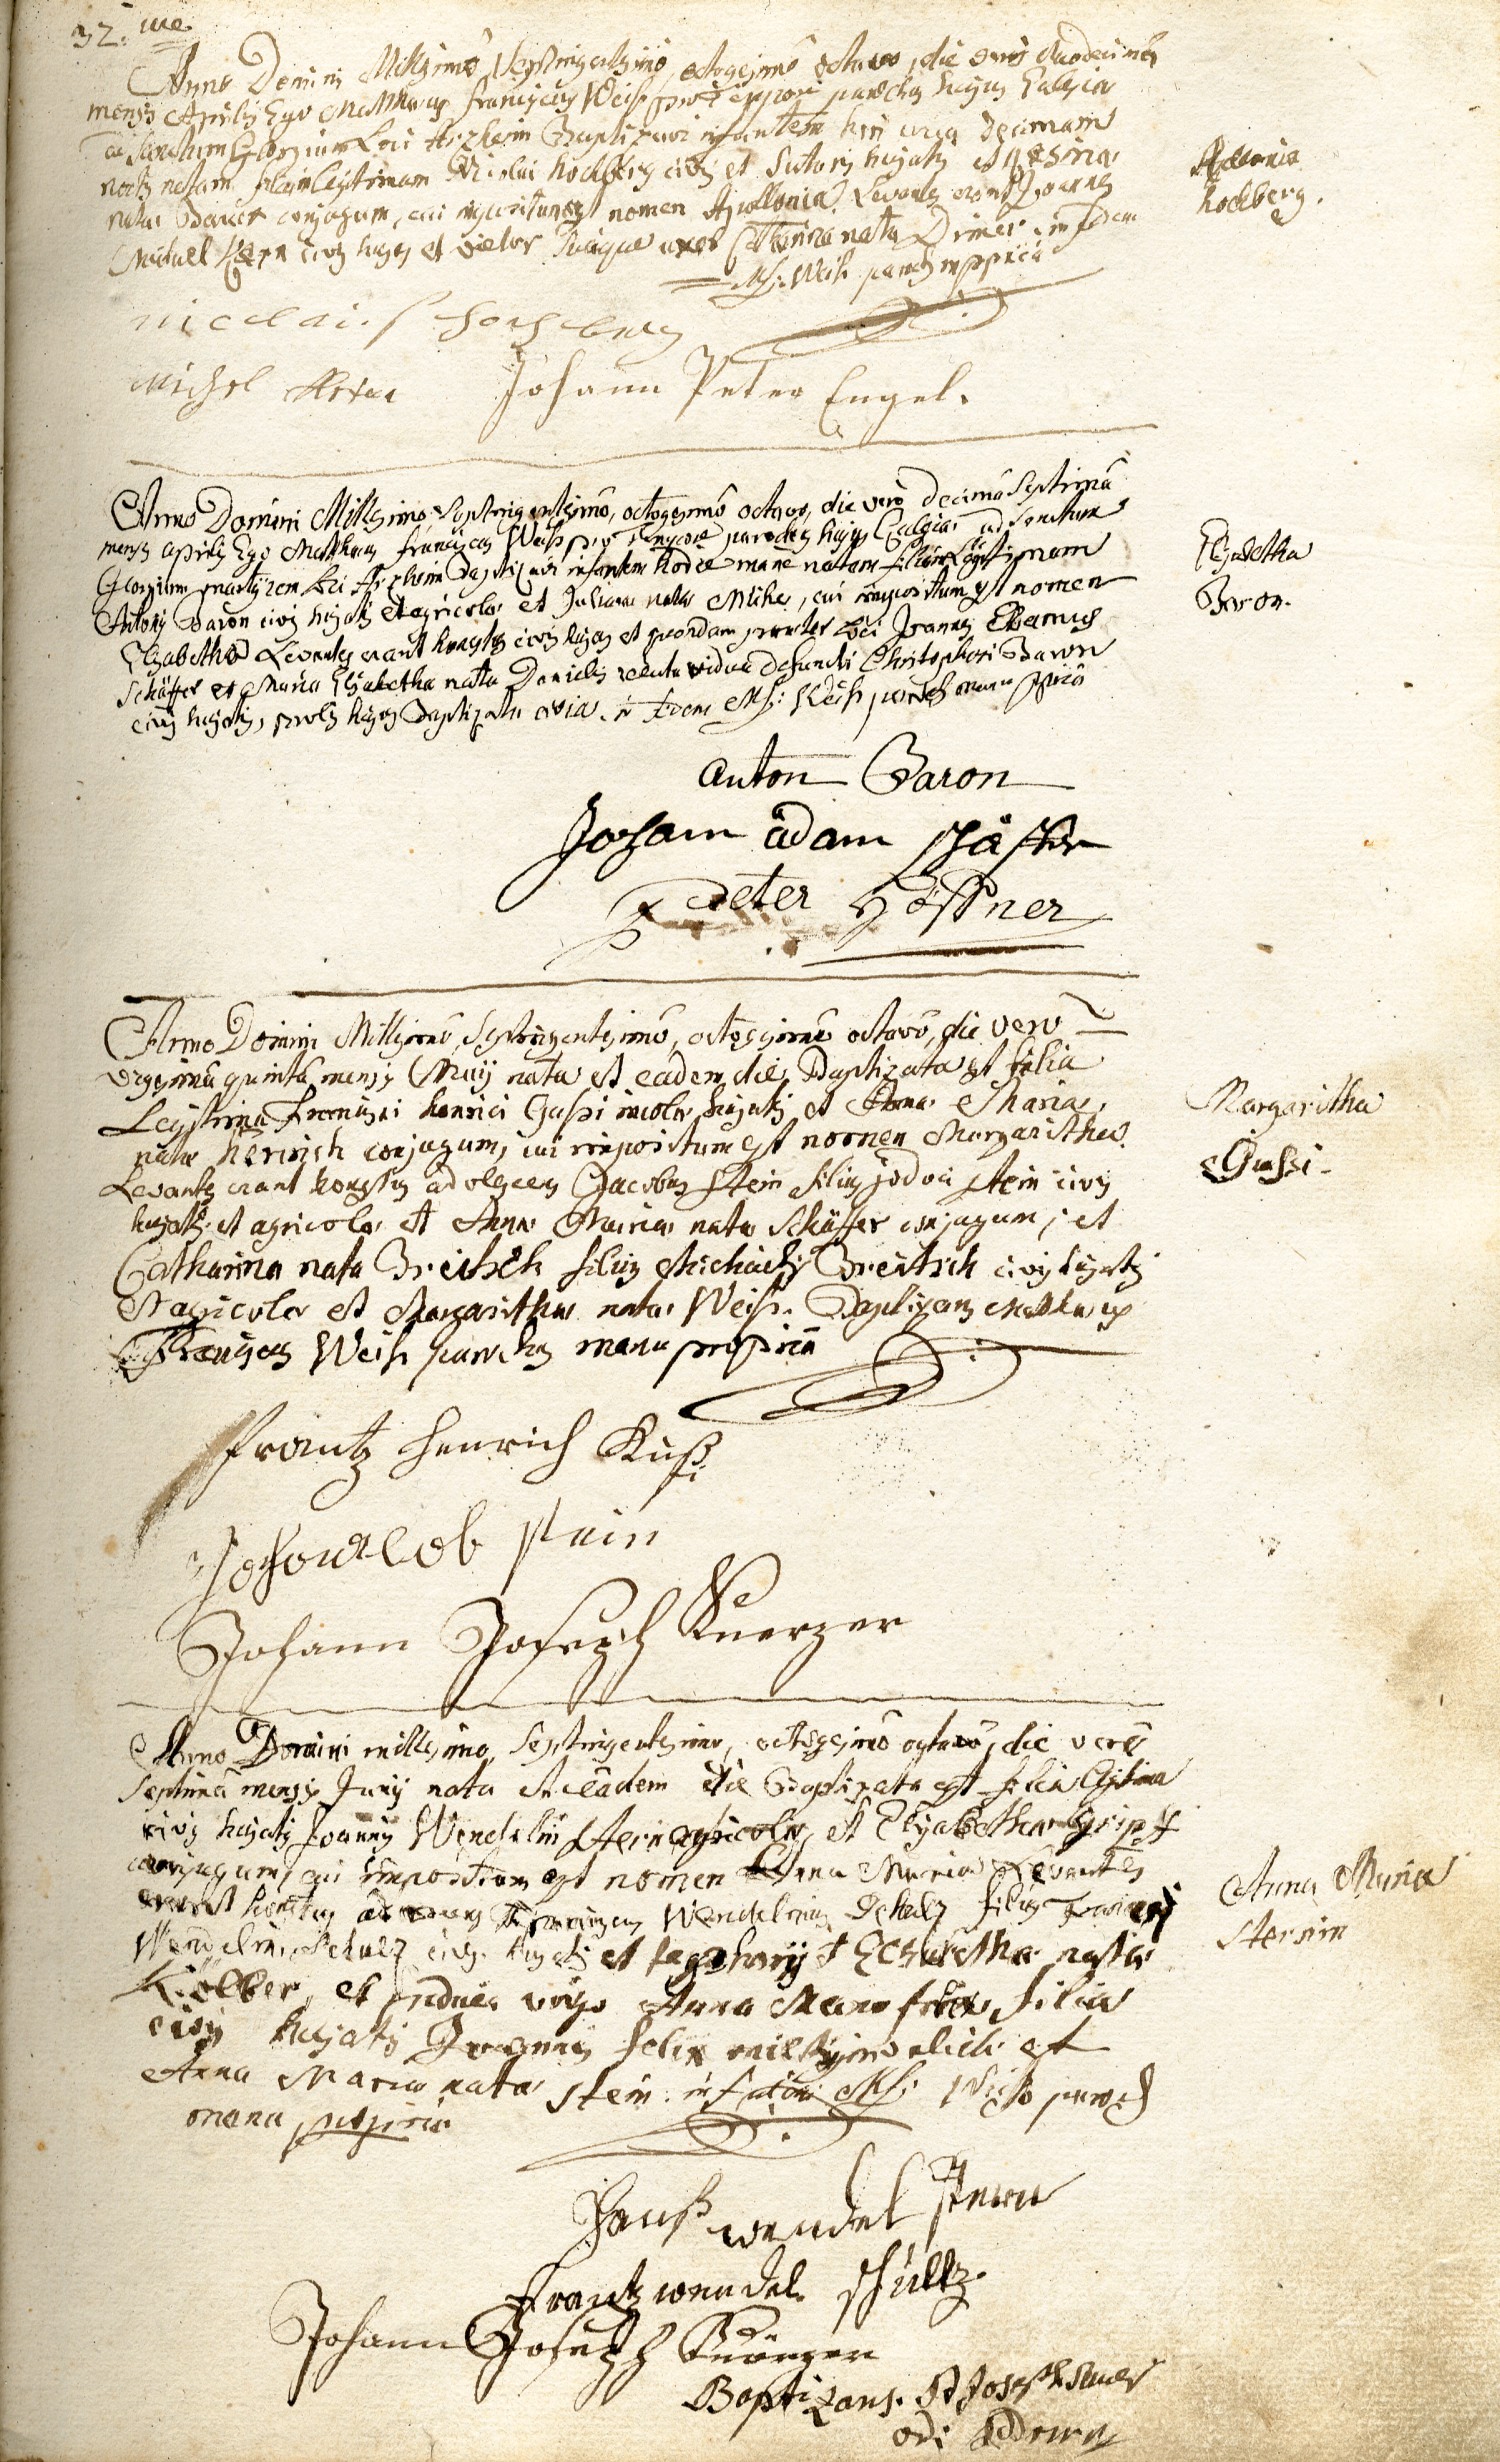 32. me
Anno Domini Millesimo, septingentesimo octogesimo octavo, die vero duodecima
mensis Aprilis Ego Matthaeus Franciscus Weiss pro tempore parochus hujus Ecclesiae
ad Sanctum Georgium Loci Arzheim Baptizavi infantem heri circa decimam
noctis natam filiam legitimam Nicolai Hochberg civis et Sutoris hujatis et
natae Bauer conjugum, cui impositum est nomen Apollonia. Levantes erant Joannes
Michael Kern civis hujas et vietor suaque uxor Catharina nata in fidem
M: F: Weiss parochus mppria
Apollonia
Hochberg.
nicolaus hochberg
Michel Kern Johann Peter Engel.
Anno Domini Millesimo, septingentesimo, octogesimo octavo, die vero decima septima
mensis aprilis Ego Matthaeus franciscus Weiss pro tempore parochus hujus Ecclesiae ad Sanctum
Georgium martyrem loci Arzheim Baptizavi infantem hodie mane natam filiam legitimam
Antonij Baron civis hujatis et agricolae et Julianae natae Milhes, cui impositum est nomen
Elisabetha Levantes erant honestus civis hujas et quondam praetor loci Joannes Adamus
Schäffer et Maria Elisabetha nata Daniels relicta vidua defuncti Christophori Baron
civis hujatis, prolis hujus Baptizatae avia. in fidem M: F: Weiss parochus manu ppria
Elisabetha
Baron.
Anton Baron
Johann adam schäffer
Peter Höffner
Anno Domini Millesimo, septingentesimo, octogesimo octavo, die vero
vigesima quinta mensis Maij nata et eadem die Baptizata est filia
Legitima Francisci henrici Gussi incolae hujatis et Annae Mariae,
natae henrich conjugum, cui impositum est nomen Margaritha.
Levantes erant honestus adolescens Jacobus Stein filius jodoci stein civis
hujatis et agricolae et Annae Mariae natae Schäffer conjugum; et
Catharina nata Breitsch filia Michaelis Breitsch civis hujatis
et agricolae et Margarithae natae Weiss. Baptizans Matthaeus
Franciscus Weiss parochus manu propria
Margaritha
Gussi.
Frantz Henrich Kussi
Johan Jacob stein
Johann Joseph Kuerzer
Anno Domini millesimo, septingentesimo, octogesimo octavo, die vero
septima mensis Junij nata et eadem die Baptizata est filia legitima
civis hujatis Joannis Wendelini Stern agricolae, et Elisabethae
conjugum, cui impositum est nomen Anna Maria Levantes
erant honestus adolescens Franciscus Wendelinus Schulz filius Francisci
Wendelini Schulz civis hujatis et et Elisabethae natae
Kölber, et pudica virgo Anna Maria filia
civis hujatis Joannis et
Anna Maria nata Stein. in fidem M: F: Weiss paroch
manu propria
Anna Maria
Sternin
Hanß wendel Stern
Frantz wendel schultz.
Johann Joseph Kuerzer
Baptizans. P Joseph